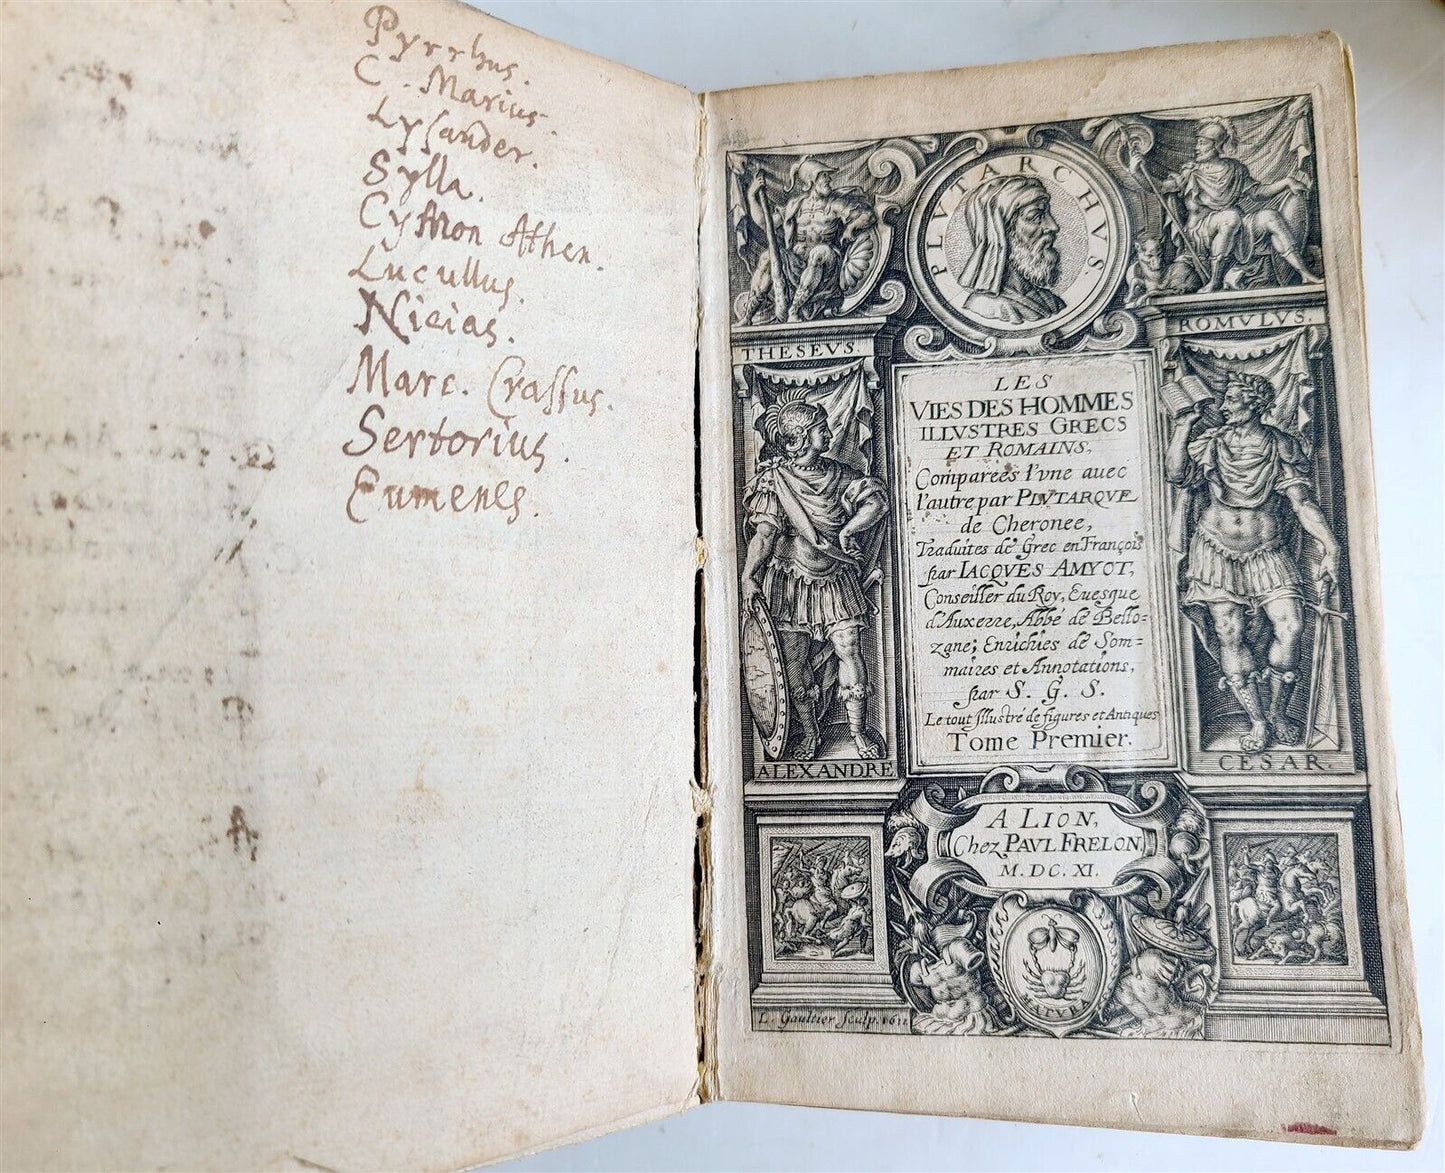 Pyrrhus.
C. Marius.
Lysander.
Sylla.
Cymon Athen.
Lucullus.
Nicias.
Marc. Crassus.
Sertorius.
Eumenes.
PLVTARCHVS.
THESEVS.
ROMVLVS.
LES
VIES DES HOMMES
ILLVSTRES GRECS
ET ROMAINS,
Comparees l'vne auec
l'autre par PLVTARQVE
de Cheronee,
Traduites de Grec en François
par IACQVES AMYOT,
Conseiller du Roy, Euesque
d'Auxerre, Abbé de Bello=
zane; Enrichies de Som=
maires et Annotations,
par S. G. S.
Le tout Illustré de figures et Antiques
Tome Premier.
ALEXANDRE
CESAR.
A LION,
Chez PAVL FRELON
M. DC. XI.
MATVRA
L. Gaultier sculp. 1611